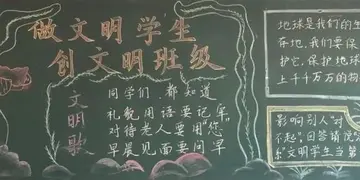 做文明学生
创文明班级
文明歌
同学们,都知道
礼貌用语要记牢
对待老人要用"您"
早晨见面要问早
地球是我们的生
存地,我们要保
护它,保护地球
上千千万万的物
影响别人"对
不起",回答请说
"文明学生当第